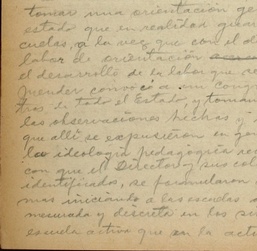 tomar una orientación ge
estado que en realidad guar
cuelas, a la vez que con el d
labor de orientación
el desarrollo de la labor que
prender convocó a un congr
tros de todo el Estado, y toman
las observaciones hechas y
que allí se expusieron en gen
la ideología pedagógica
con que el Director y sus col
identificados, se formularon
mas iniciando a las escuelas
mesurada y discreta en los
escuela activa que en la actu